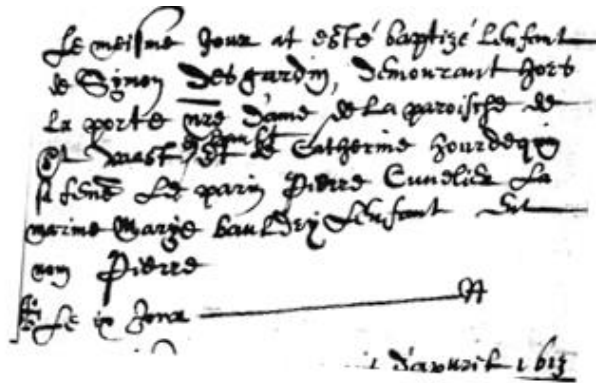 Le meisme Jour at esté baptizé Lenfant
de Symon Desgardin, demourant hors
La porte nre dame, de La paroische de
St Vaast et de Catherine hourdequin
sa feme Le parin Pierre Cuvelier La
marine Marye baudry Lenfant dit
nom Pierre
Le Jour
d'avuril 1613